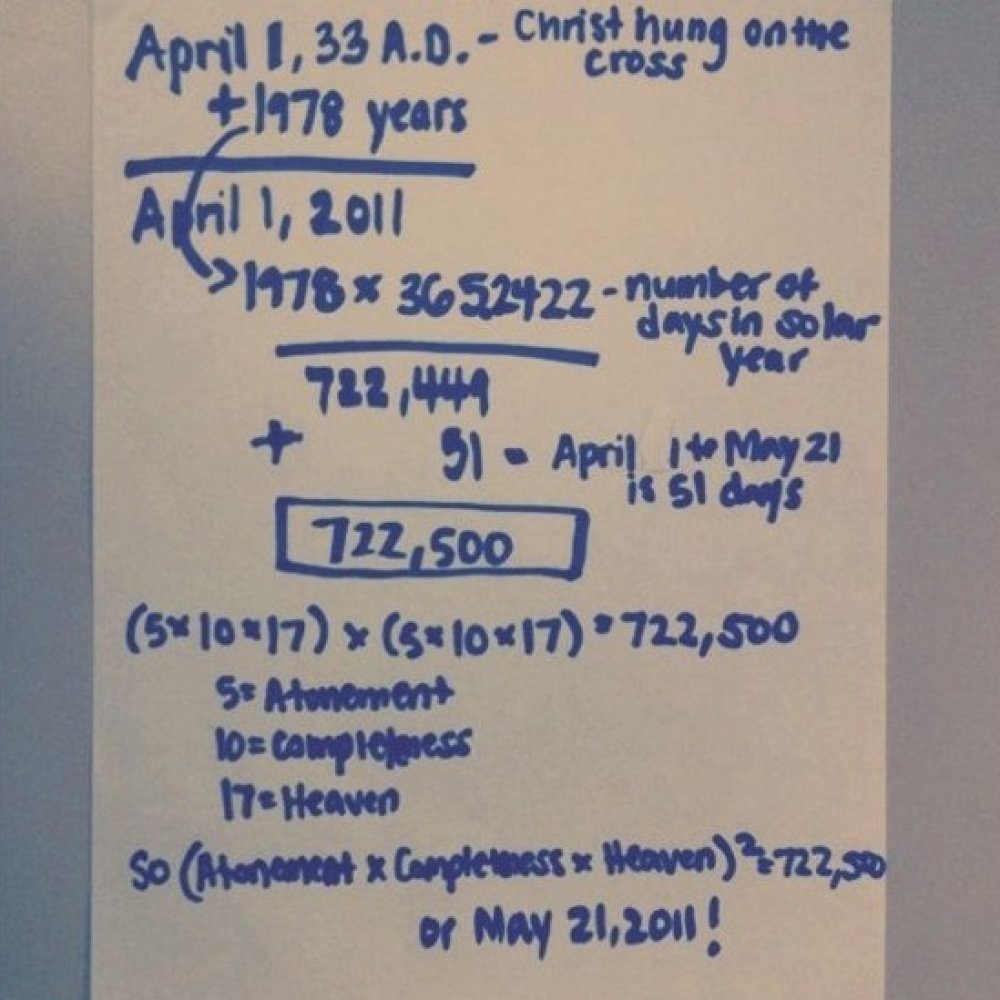 April 1, 33 A.D. - Christ hung on the
cross
+1978 years
April 1, 2011
1978 x 365.2422 - number of
days in solar
year
722,449
+ 51 = April 1 to May 21
is 51 days
722,500
(5x10x17) x (5x10x17) = 722,500
5= Atonement
10= Completness
17= Heaven
So (Atonement x Completness x Heaven)²=722,500
or May 21, 2011!